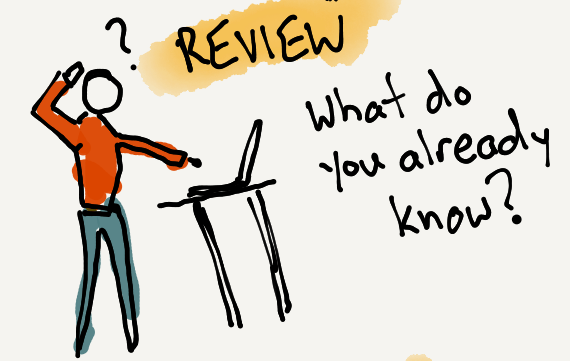 ?
REVIEW
What do
you already
know?